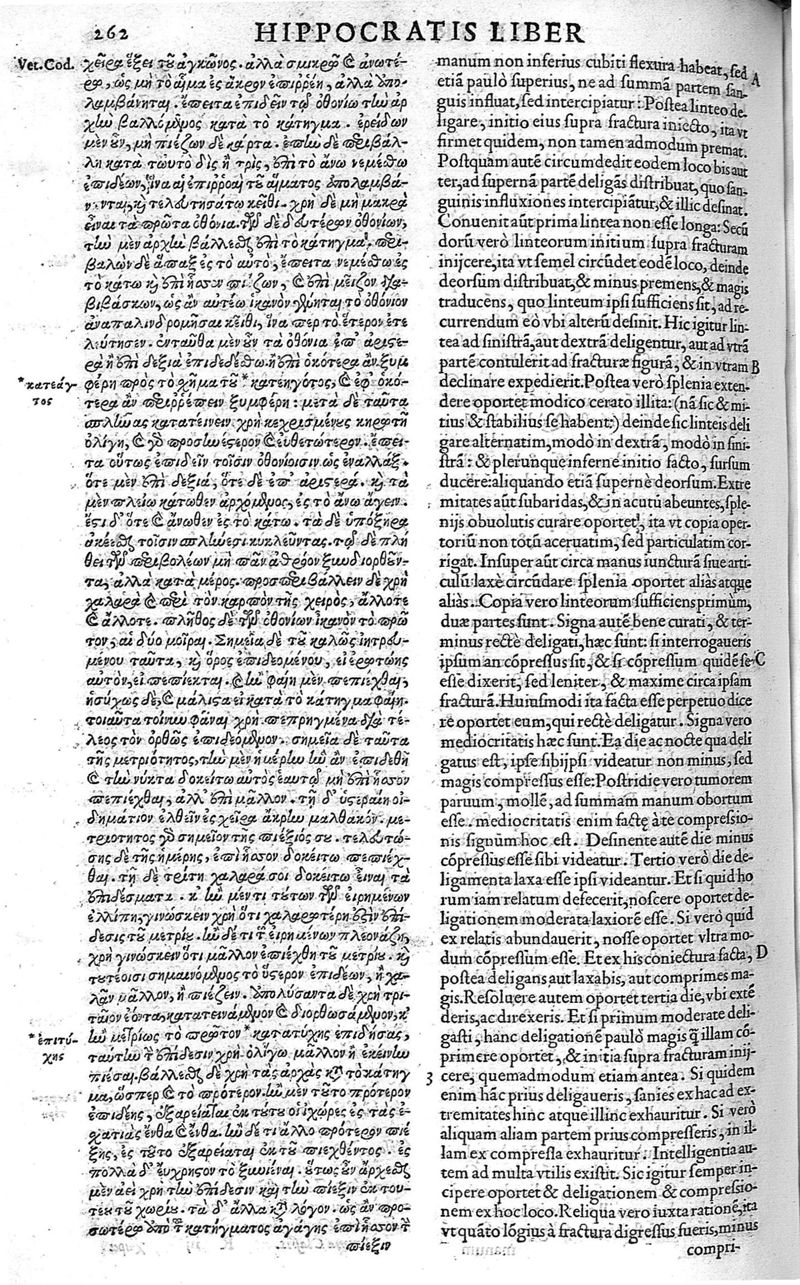 262
HIPPOCRATIS LIBER
Vet. Cod.
χεῖρα ἕξει τοῦ ἀγκῶνος. ἀλλὰ σμικρῷ καὶ ἀνωτέ-
ρω, ὡς μὴ τὸ αἷμα ἐς ἄκρον ἐπιρρέῃ, ἀλλὰ ὑπο-
λαμβάνηται. ἔπειτα ἐπιδεῖν τῷ ὀθονίῳ τὴν ἀρ
χὴν βαλλόμενος κατὰ τὸ κάτηγμα. ἐρείδων
μὲν οὖν, μὴ πιέζων δὲ κάρτα. ἐπὴν δὲ περιβάλ-
λῃ κατὰ τωὐτὸ δὶς ἢ τρὶς, ἐπὶ τὸ ἄνω νεμέσθω
ἐπιδέων, ἵνα αἱ ἐπιρροαὶ τοῦ αἵματος ὑπολαμβά-
νωνται, καὶ τελευτησάτω κεῖθι. χρὴ δὲ μὴ μακρὰ
εἶναι τὰ πρῶτα ὀθόνια. τῶν δὲ δευτέρων ὀθονίων,
τὴν μὲν ἀρχὴν βάλλεσθαι ἐπὶ τὸ κάτηγμα, περι-
βαλὼν δὲ ἅπαξ ἐς τὸ αὐτὸ, ἔπειτα νεμέσθω ἐς
τὸ κάτω καὶ ἐπὶ ἧσσον πιέζων, καὶ ἐπὶ μεῖζον δια-
βιβάσκων, ὡς ἂν αὐτέῳ ἱκανὸν γένηται τὸ ὀθόνιον
ἀναπαλινδρομῆσαι κεῖθι, ἵνα περ τὸ ἕτερον ἐτε
λεύτησεν. ἐνταῦθα μὲν οὖν τὰ ὀθόνια ἐπ' ἀριστε-
ρὰ ἢ ἐπὶ δεξιὰ ἐπιδεδέσθω. ἢ ἐπὶ ὁκότερα ἂν ξυμ
φέρῃ πρὸς τὸ σχῆμα τοῦ * κατεηγότος, καὶ ἐφ' ὁκό-
τερα ἂν περιρρέπειν ξυμφέρῃ: μετὰ δὲ ταῦτα
σπλῆνας κατατείνειν χρὴ κεχρισμένους κηρωτῇ
ὀλίγῃ, καὶ γὰρ προσηνέστερον καὶ εὐθετώτερον. ἔπει-
τα οὕτως ἐπιδεῖν τοῖσιν ὀθονίοισιν ὡς ἐναλλάξ.
ὁτὲ μὲν ἐπὶ δεξιὰ, ὁτὲ δὲ ἐπ' ἀριστερά. καὶ τὰ
μὲν πλείω κάτωθεν ἀρχόμενος, ἐς τὸ ἄνω ἄγειν.
ἔστι δ' ὅτε καὶ ἄνωθεν ἐς τὸ κάτω. τὰ δὲ ὑπόξηρα
ἀκέεσθαι τοῖσιν σπλήνεσι κυκλεῦντας. τῷ δὲ πλή
θει τῶν περιβολέων μὴ πᾶν ἀθρόον ξυνδιορθοῦν-
τα, ἀλλὰ κατὰ μέρος. προσπεριβάλλειν δὲ χρὴ
χαλαρὰ καὶ περὶ τὸν καρπὸν τῆς χειρὸς, ἄλλοτε
καὶ ἄλλοτε. πλῆθος δὲ τῶν ὀθονίων ἱκανὸν τὸ πρῶ
τον, αἱ δύο μοῖραι. Σημεῖα δὲ τοῦ καλῶς ἰητρευ-
μένου ταῦτα, καὶ ὅρος ἐπιδεομένου, εἰ ἐρωτῴης
αὐτὸν, εἰ πεπίεκται. καὶ ἢν φαίη μὲν πεπιέχθαι,
ἡσύχως δὲ, καὶ μάλιστα εἰ κατὰ τὸ κάτηγμα φαίη.
τοιαῦτα τοίνυν φάναι χρὴ πεπρηγμένα διὰ τέ-
λεος τὸν ὀρθῶς ἐπιδεόμενον. σημεῖα δὲ ταῦτα
τῆς μετριότητος, τὴν μὲν ἡμέρην ἣν ἂν ἐπιδεθῇ
καὶ τὴν νύκτα δοκείτω αὐτὸς ἑαυτῷ μὴ ἐπὶ ἧσσον
πεπιέχθαι, ἀλλ' ἐπὶ μᾶλλον. τῇ δ' ὑστεραίῃ οἰ-
δημάτιον ἐλθεῖν ἐς χεῖρα ἄκρην μαλθακόν. με-
τριότητος γὰρ σημεῖον τῆς πιέξιός σευ. τελευτώ-
σης δὲ τῆς ἡμέρης, ἐπὶ ἧσσον δοκείτω πεπιέχ-
θαι. τῇ δὲ τρίτῃ χαλαρά σοι δοκείτω εἶναι τὰ
ἐπιδέσματα. κ' ἢν μέν τι τούτων τῶν εἰρημένων
ἐλλίπῃ, γινώσκειν χρὴ ὅτι χαλαρωτέρη ἐστὶν ἐπί-
δεσις τοῦ μετρίου. ἢν δέ τι τῶν εἰρημένων πλεονάζῃ,
χρὴ γινώσκειν ὅτι μᾶλλον ἐπιέχθη τοῦ μετρίου. καὶ
τουτέοισι σημαινόμενος τὸ ὕστερον ἐπιδέων, ἢ χα-
λᾶν μᾶλλον, ἢ πιέζειν. ἀπολύσαντα δὲ χρὴ τρι-
ταῖον ἐόντα, κατατεινάμενον καὶ διορθωσάμενον, κ'
ἢν μετρίως τὸ πρῶτον * κατατύχης ἐπιδήσας,
ταύτην τὴν ἐπίδεσιν χρὴ ὀλίγῳ μᾶλλον ἢ ἐκείνην
πιέσαι. βάλλεσθαι δὲ χρὴ τὰς ἀρχὰς κατὰ τὸ κάτηγ
μα, ὥσπερ καὶ τὸ πρότερον. ἢν μὲν τοῦτο πρότερον
ἐπιδέῃς, ἐξαρείαται ἐκ τούτου οἱ ἰχῶρες ἐς τὰς ἐ-
σχατιὰς ἔνθα καὶ ἔνθα. ἢν δέ τι ἄλλο πρότερον πιέ
ζῃς, ἐς τοῦτο ἐξαρείαται ἐκ τοῦ πιεχθέντος. ἐς
πολλὰ δ' εὔχρηστον τὸ ξυνιέναι. οὕτως οὖν ἄρχεσθαι
μὲν ἀεὶ χρὴ τὴν ἐπίδεσιν καὶ τὴν πίεξιν ἐκ τού-
τευ τοῦ χωρίου. τὰ δ' ἄλλα κατὰ λόγον. ὡς ἂν προ-
σωτέρω ἀπὸ τοῦ κατήγματος ἀγάγῃς ἐπὶ ἧσσον τὴν
πίεξιν
* κατεάγ-
τος
* ἐπιτύ-
χης
manum non inferius cubiti flexura habeat, sed
etiã paulò superius, ne ad summã partem san-
guis influat, sed intercipiatur: Postea linteo de-
ligare, initio eius supra fractura iniecto, ita vt
firmet quidem, non tamen admodum premat.
Postquam autẽ circumdedit eodem loco bis aut
ter, ad supernã partẽ deligãs distribuat, quo san-
guinis influxiones intercipiãtur, & illic desinat.
Conuenit aut prima lintea non esse longa: Secũ
dorũ verò linteorum initium supra fracturam
inijcere, ita vt semel circũdet eodẽ loco, deinde
deorsum distribuat, & minus premens, & magis
traducens, quo linteum ipsi sufficiens sit, ad re-
currendum eò vbi alterũ desinit. Hic igitur lin-
tea ad sinistrã, aut dextrã deligentur, aut ad vtrã
partẽ contulerit ad fracturæ figurã, & in vtram
declinare expedierit. Postea verò splenia exten-
dere oportet modico cerato illita: (nã sic & mi-
tius & stabilius se habent:) deinde sic linteis deli
gare alternatim, modò in dextrã, modò in sini-
strã: & plerunque inferne initio facto, sursum
ducere: aliquando etiã superne deorsum. Extre
mitates aut subaridas, & in acutũ abeuntes, sple-
nijs obuolutis curare oportet, ita vt copia oper-
toriũ non totũ aceruatim, sed particulatim cor-
rigat. Insuper aut circa manus iuncturã siue arti-
culũ laxè circũdare splenia oportet aliàs atque
aliàs. Copia vero linteorum sufficiens primùm,
duæ partes sunt. Signa autẽ bene curati, & ter-
minus rectè deligati, hæc sunt: si interrogaueris
ipsum an cõpressus sit, & si cõpressum quidẽ se-
esse dixerit, sed leniter, & maxime circa ipsam
fracturã. Huiusmodi ita facta esse perpetuo dice
re oportet eum, qui rectè deligatur. Signa vero
mediocritatis hæc sunt. Ea die ac nocte qua deli
gatus est, ipse sibijpsi videatur non minus, sed
magis compressus esse: Postridie vero tumorem
paruum, mollẽ, ad summam manum obortum
esse. mediocritatis enim factę à te compressio-
nis signũm hoc est. Desinente autẽ die minus
cõpressus esse sibi videatur. Tertio verò die de-
ligamenta laxa esse ipsi videantur. Et si quid ho
rum iam relatum defecerit, noscere oportet de-
ligationem moderata laxiorẽ esse. Si verò quid
ex relatis abundauerit, nosse oportet vltra mo-
dum cõpressum esse. Et ex his coniectura facta,
postea deligans aut laxabis, aut comprimes ma-
gis. Resoluere autem oportet tertia die, vbi extẽ
deris, ac direxeris. Et si primum moderate deli-
gasti, hanc deligationẽ paulò magis q̃ illam cõ-
primere oportet, & initia supra fracturam inij-
cere, quemadmodum etiam antea. Si quidem
enim hãc prius deligaueris, sanies ex hac ad ex-
tremitates hinc atque illinc exhauritur. Si verò
aliquam aliam partem prius compresseris, in il-
lam ex compressa exhauritur. Intelligentia au-
tem ad multa vtilis existit. Sic igitur semper in-
cipere oportet & deligationem & compressio-
nem ex hoc loco. Reliqua vero iuxta rationẽ, ita
vt quãto lõgius à fractura digressus fueris, minus
compri-
A
B
C
D
3